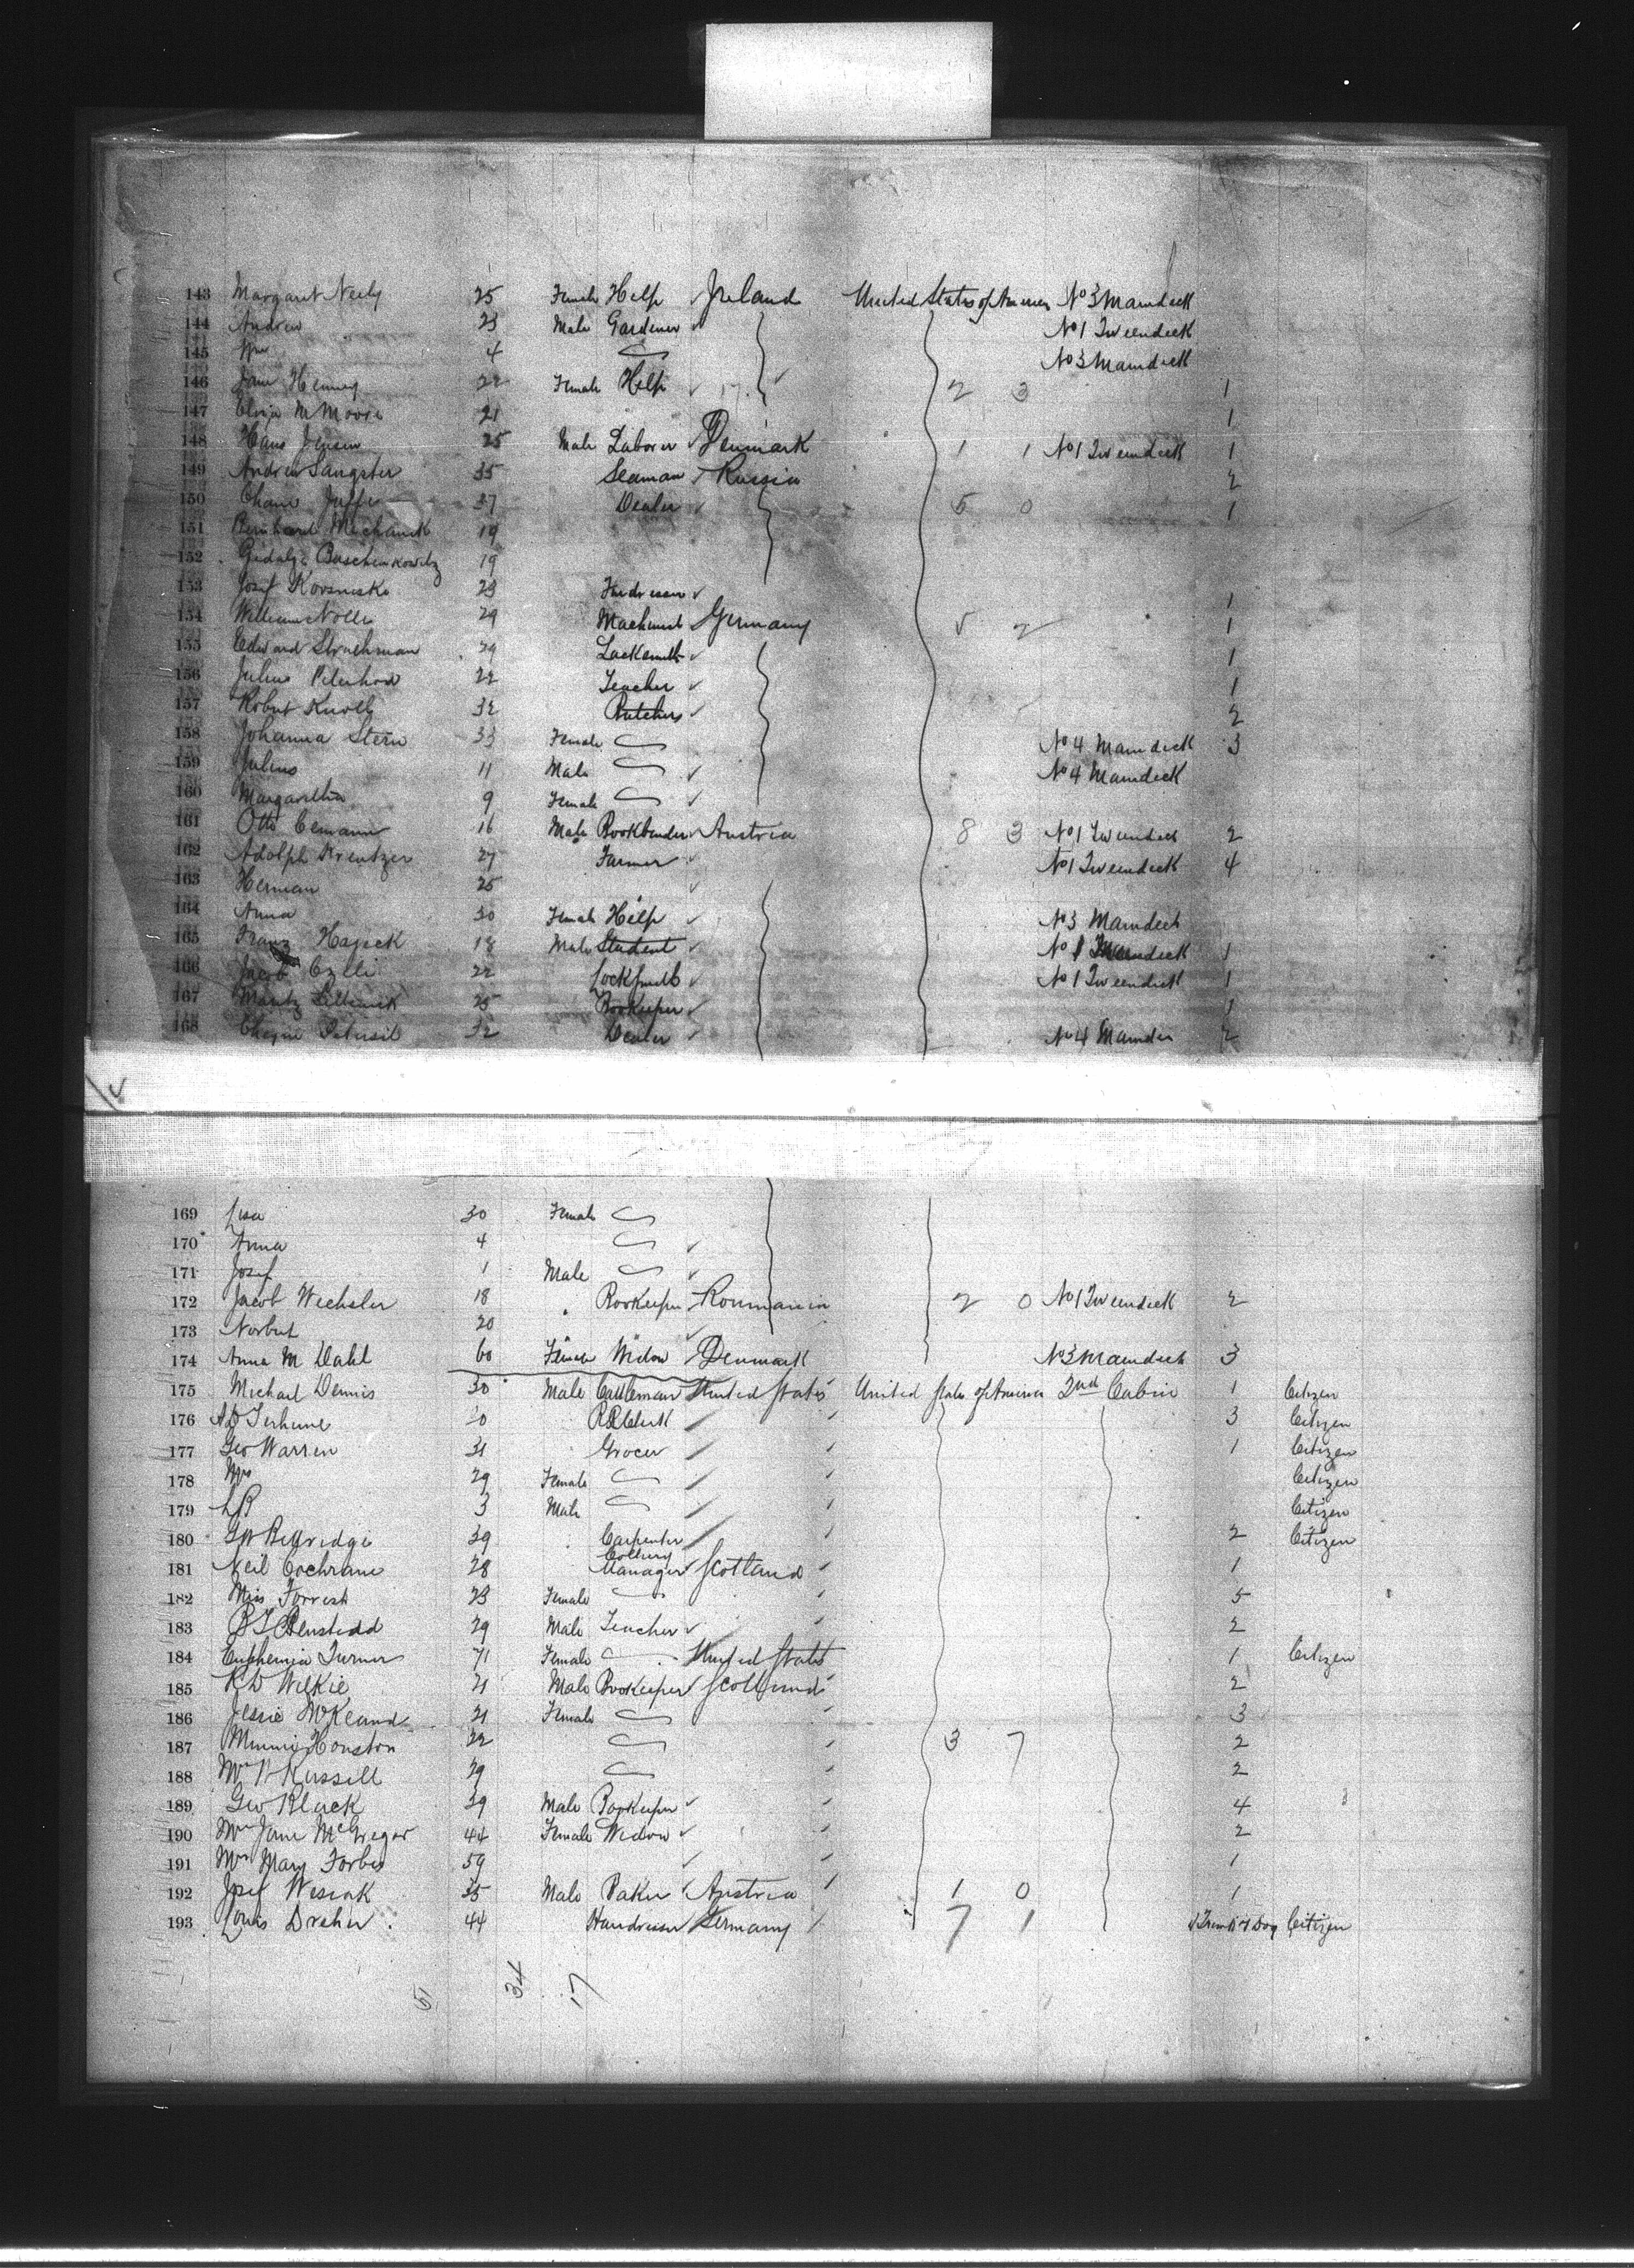 143 Margaret Neely 25 Female Help Ireland United States of America No 3 Maindeck
144 Andrew 23 Male Gardener No 1 Tweendeck
145 Wm 4 No 3 Maindeck
146 Jane Henney 22 Female Help 17 2 3 1
147 Eliza M Moore 21 1
148 Hans Jensen 25 Male Laborer Denmark 1 1 No 1 Tweendeck 1
149 Andrew Sangster 35 Seaman Russia 2
150 Chane Jaffe 37 Dealer 5 0 1
151 Bernhard Mechanik 19
152 19
153 Josef 23 1
154 William Nolle 29 Machinist Germany 5 2 1
155 Edward 29 Locksmith 1
156 Julius 22 Teacher 1
157 Robert Knoll 32 Butcher 2
158 Johanna Stern 33 Female No 4 Maindeck 3
159 Julius 11 Male No 4 Maindeck
160 Margaretha 9 Female
161 Otto 16 Male Bookbinder Austria 8 3 No 1 Tweendeck 2
162 Adolph Kreutzer 27 Farmer No 1 Tweendeck 4
163 Herman 25
164 Anna 30 Female Help No 3 Maindeck
165 Franz Hajeck 18 Male Student No 1 1
166 Jacob 22 Locksmith No 1 Tweendeck 1
167 25 Bookeeper 1
168 32 Dealer No 4 Maindeck 2
169 Lisa 30 Female
170 Anna 4
171 Josef 1 Male
172 Jacob Wechsler 18 " Bookeeper Roumania 2 0 No 1 Tweendeck 2
173 Norbert 20
174 Anna M Dahl 60 Female Widow Denmark No 3 Maindeck 3
175 Michael Dennis 30 Male Cattleman United States United States of America 2nd Cabin 1 Citizen
176 AD Terhune RR Clerk 3 Citizen
177 Geo Warren 31 Grocer 1 Citizen
178 Mrs 29 Female Citizen
179 LB 3 Male Citizen
180 39 Carpenter 2 Citizen
181 Neil Cochrane 28 Colliery Manager Scotland 1
182 Miss Forrest 23 Female 5
183 29 Male Teacher 2
184 Euphemia Turner 71 Female United States 1 Citizen
185 Wilkie 21 Male Bookeeper Scotland 2
186 Jessie McKeand 21 Female 3
187 Minnie Houston 22 3 7 2
188 Russell 29 2
189 Geo Black 39 Male Bookeeper 4
190 Mrs Jane McGregor 44 Female Widow 2
191 Mrs Mary Forbes 59 1
192 Josef Wesiak 35 Male Baker Austria 1 0 1
193 Louis Dreher 44 Hairdresser Germany 7 1 Citizen
51 34 17